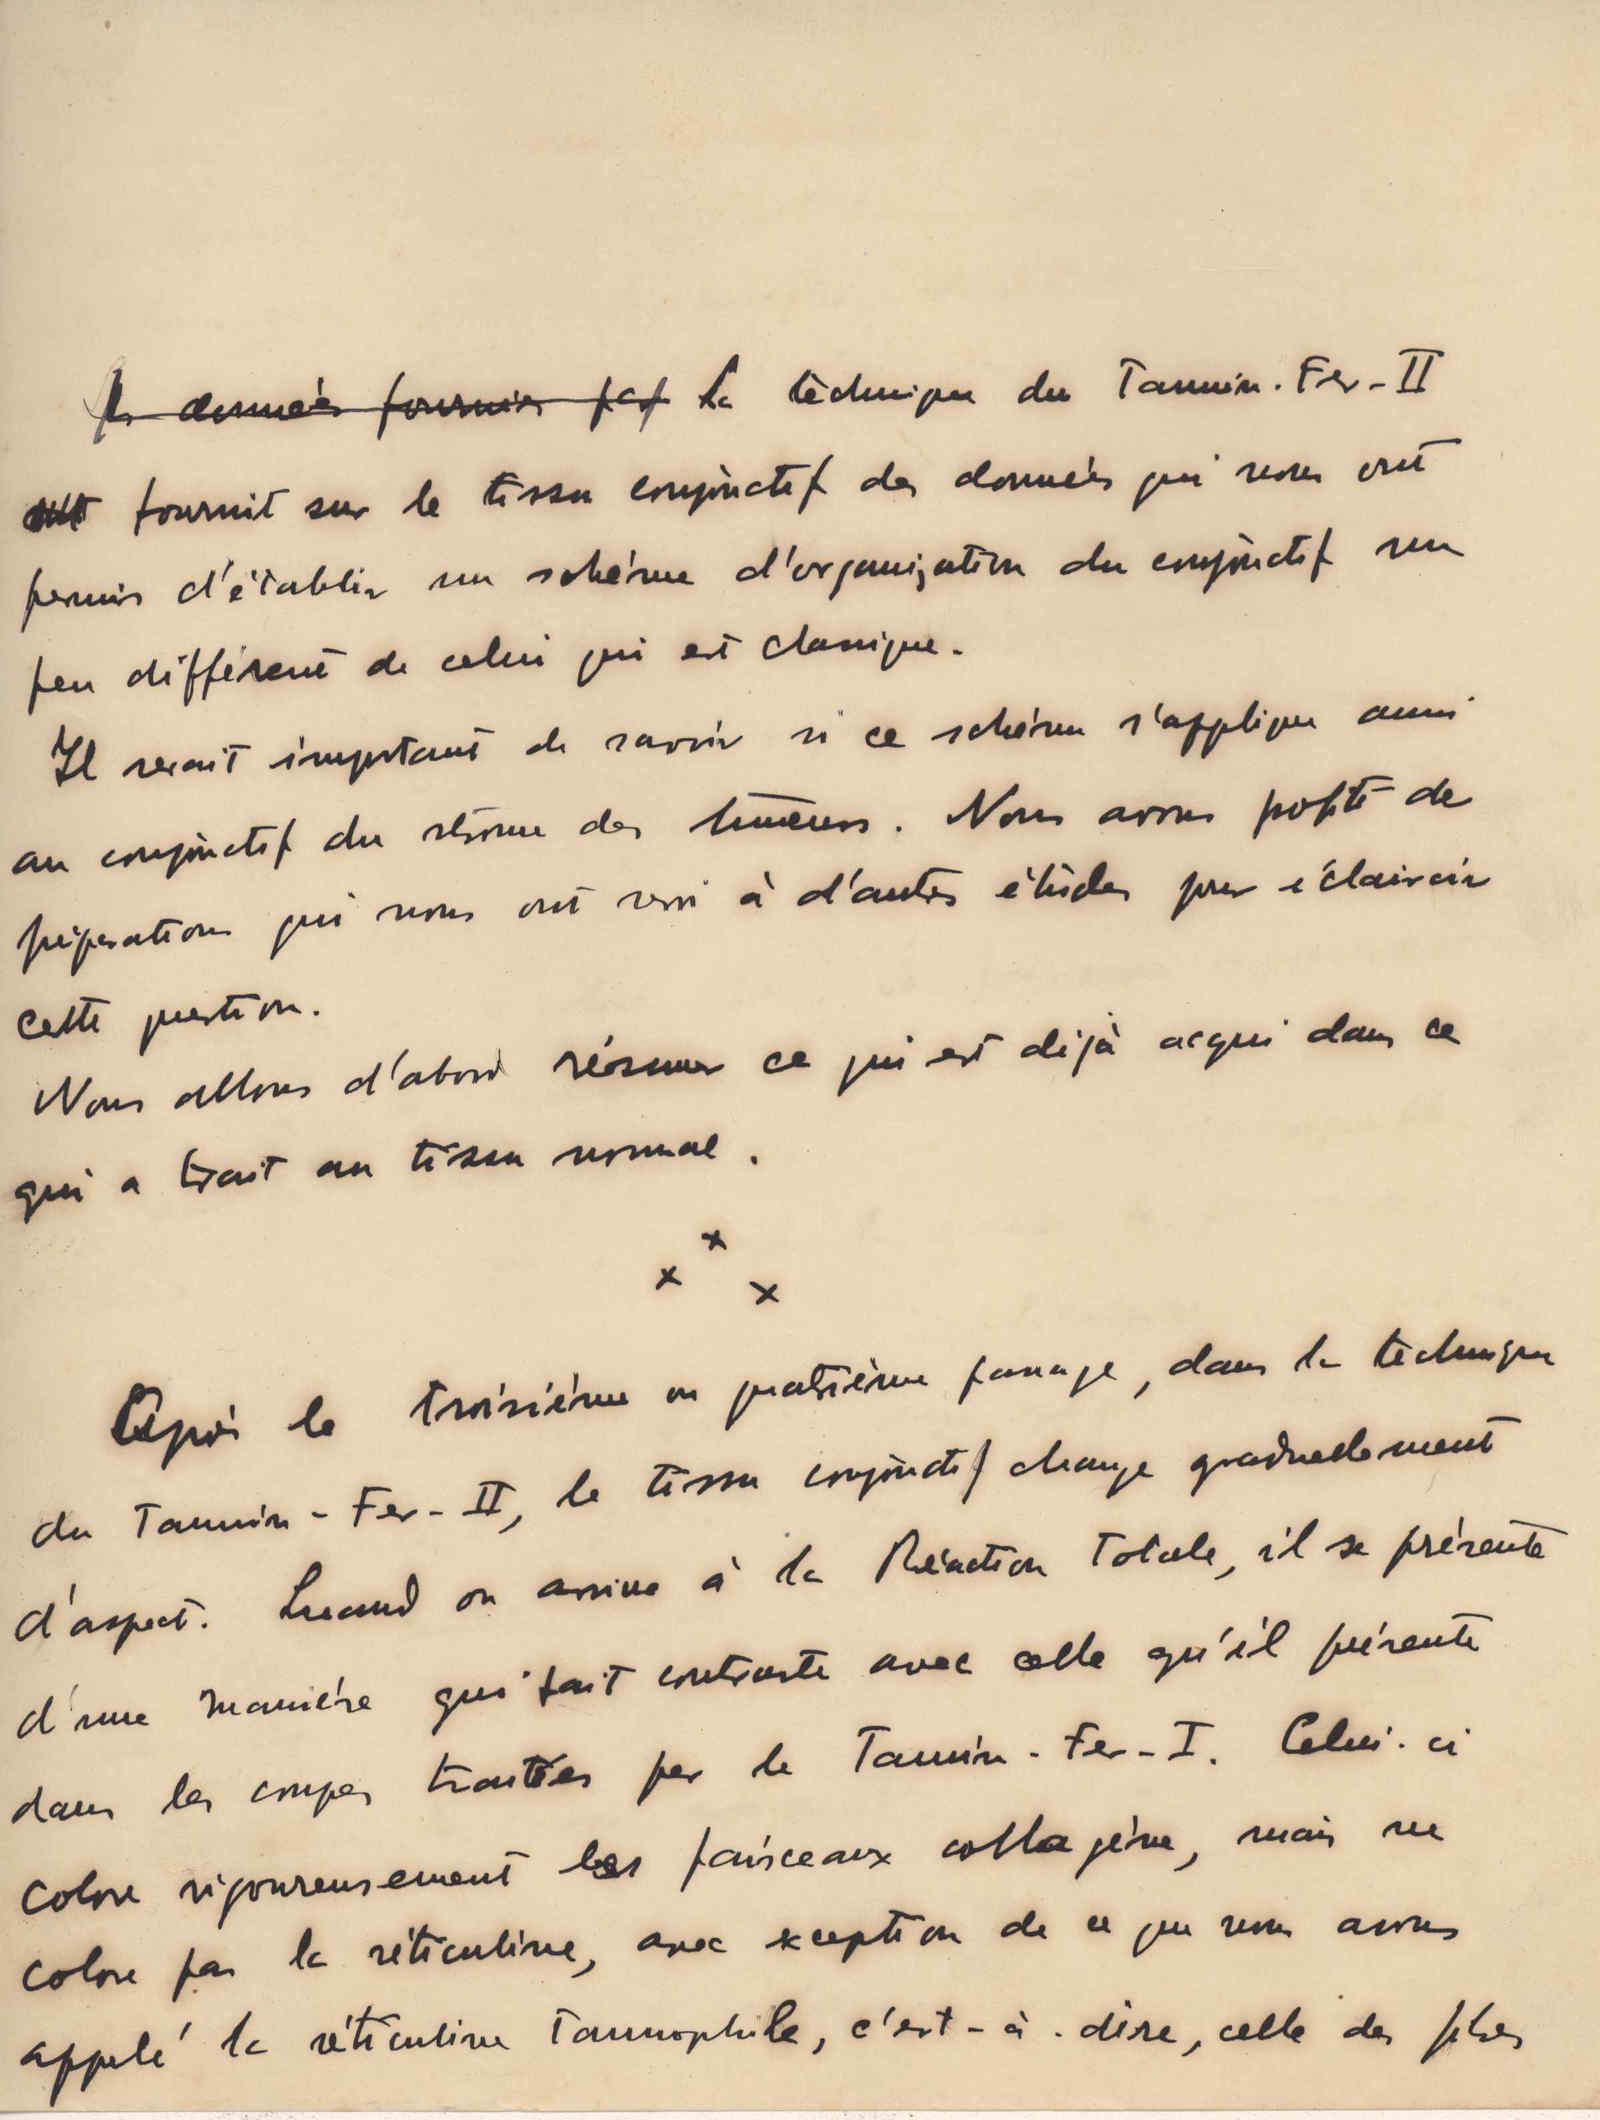 Les données fournies par La technique du Tannin-Fer-II
fournit sur le tissu conjonctif des données qui nous ont
permis d'établir un schéma d'organization du conjonctif un
peu différent de celui qui est classique.
Il serait important de savoir si ce schéma s'applique aussi
au conjonctif du stroma des tumeurs. Nous avons profité de
préparations qui nous ont servi à d'autres études pour éclaircir
cette question.
Nous allons d'abord résumer ce qui est déjà acqui dans ce
qui a trait au tissu normal.
x
x x
Après le troisiéme ou quatriéme passage, dans la technique
du Tannin-Fer-II, le tissu conjonctif change graduellement
d'aspect. Quand on arrive à la Réaction Totale, il se présente
d'une maniére qui fait contraste avec celle qu'il présente
dans les coupes traitées par le Tannin-Fer-I. Celui-ci
colore rigoureusement les faisceaux collagène, mais ne
colore pas la réticuline, avec exception de ce que nous avons
appelé la réticuline tannophile, c'est-à-dire, celle des